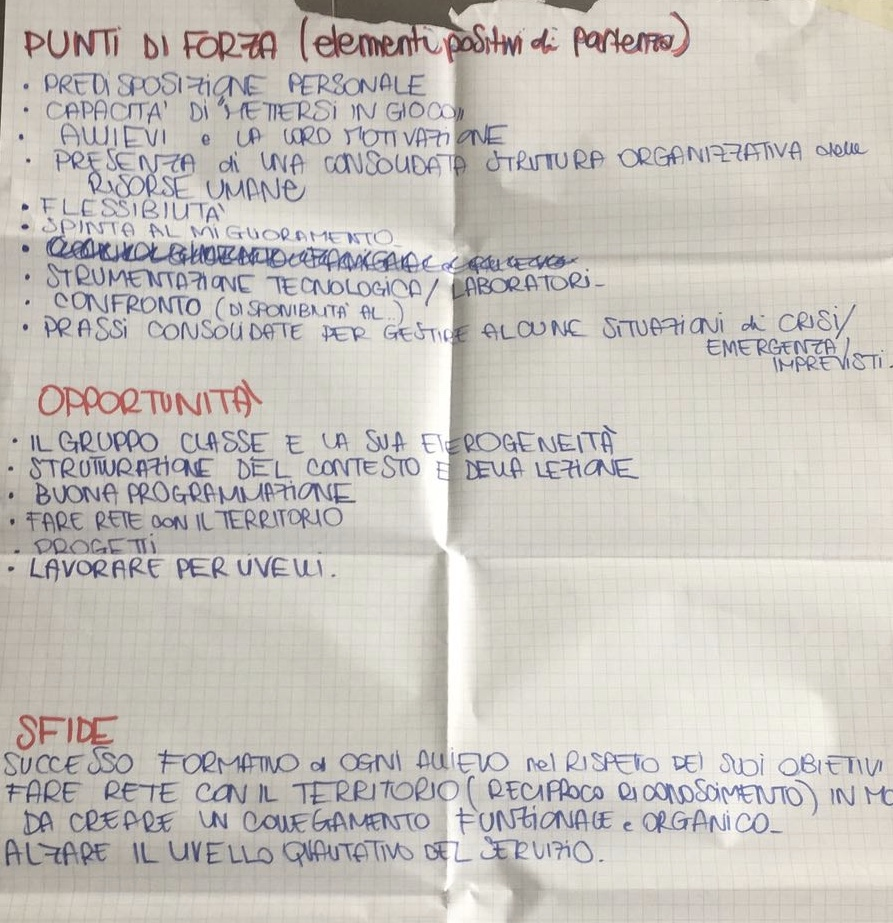 PUNTI DI FORZA (elementi positivi di partenza)
• PREDISPOSIZIONE PERSONALE
• CAPACITA' DI "METTERSI IN GIOCO"
• ALLIEVI e LA LORO MOTIVAZIONE
• PRESENZA di UNA CONSOLIDATA STRUTTURA ORGANIZZATIVA delle
RISORSE UMANE
• FLESSIBILITA'
• SPINTA AL MIGLIORAMENTO
• STRUMENTAZIONE TECNOLOGICA / LABORATORI
• CONFRONTO (DISPONIBILITA' AL...)
• PRASSI CONSOLIDATE PER GESTIRE ALCUNE SITUAZIONI di CRISI/
EMERGENZA/
IMPREVISTI.
OPPORTUNITÀ
• IL GRUPPO CLASSE E LA SUA ETEROGENEITÀ
• STRUTTURAZIONE DEL CONTESTO E DELLA LEZIONE
• BUONA PROGRAMMAZIONE
• FARE RETE CON IL TERRITORIO
• PROGETTI
• LAVORARE PER LIVELLI.
SFIDE
SUCCESSO FORMATIVO di OGNI ALLIEVO nel RISPETTO DEI SUOI OBIETTIVI
FARE RETE CON IL TERRITORIO (RECIPROCO RICONOSCIMENTO) IN MO
DA CREARE UN COLLEGAMENTO FUNZIONALE e ORGANICO
ALZARE IL LIVELLO QUALITATIVO DEL SERVIZIO.